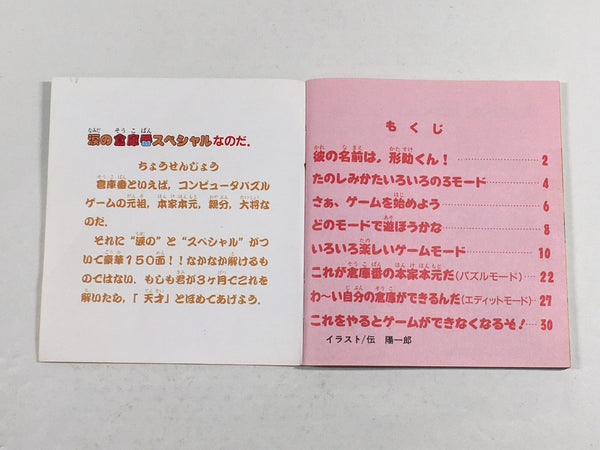 涙の倉庫番スペシャルなのだ.
ちょうせんじょう
倉庫番といえば,コンピュータパズル
ゲームの元祖,本家本元,親分,大将な
のだ.
それに"涙の"と"スペシャル"がつ
いて豪華150面!!なかなか解けるも
のではない.もしも君が3ヶ月でこれを
解いたら,「天才」とほめてあげよう.
もくじ
彼の名前は,形助くん! 2
たのしみかたいろいろの3モード 4
さぁ,ゲームを始めよう 6
どのモードで遊ぼうかな 8
いろいろ楽しいゲームモード 10
これが倉庫番の本家本元だ(パズルモード) 22
わ〜い自分の倉庫ができるんだ(エディットモード) 27
これをやるとゲームができなくなるぞ! 30
イラスト/伝 陽一郎